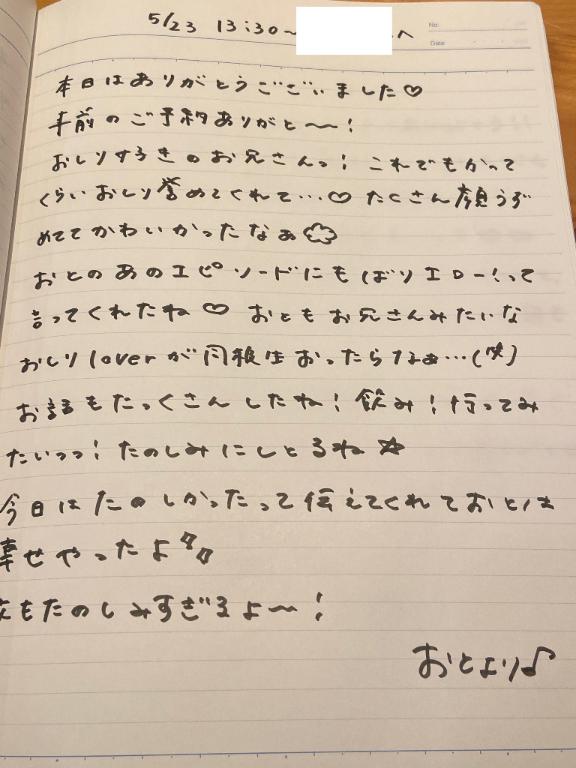 5/23 13:30〜 へ
No.
Date
本日はありがとうございました♡
事前のご予約ありがと〜!
おしりすきのお兄さんっ! これでもかって
くらいおしり誉めてくれて…♡ たくさん顔うず
めててかわいかったなぁ
おとのあのエピソードにもばりエロー!って
言ってくれたね♡ おともお兄さんみたいな
おしりloverが同級生おったらなぁ…(笑)
お話もたっくさんしたね! 飲み! 行ってみ
たいっっ! たのしみにしとるね☆
今日はたのしかったって伝えてくれておとは
幸せやったよ
もたのしみすぎるよ〜!
おとより♪